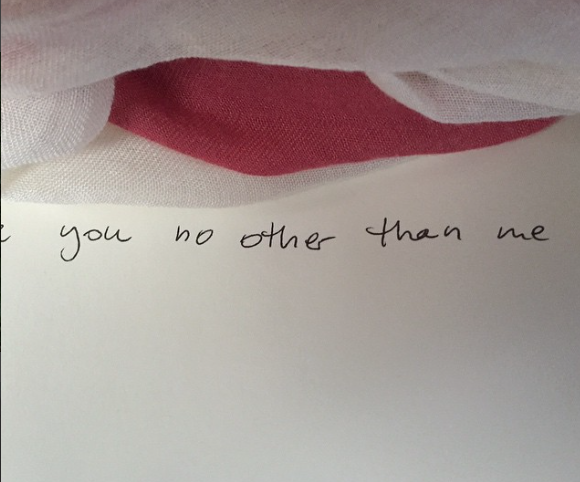 you no other than me